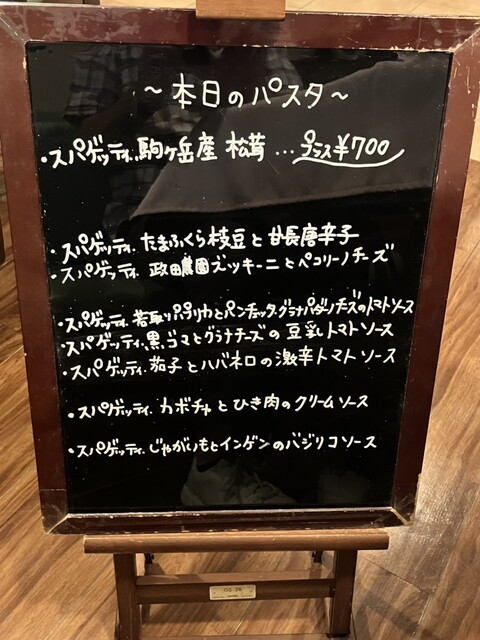 〜本日のパスタ〜
・スパゲッティ、駒ヶ岳産 松茸 … プラス¥700
・スパゲッティ、たまふくら枝豆と甘長唐辛子
・スパゲッティ、政田農園ズッキーニとペコリーノチーズ
・スパゲッティ、若取りパプリカとパンチェッタ、グラナパダーノチーズのトマトソース
・スパゲッティ、黒ゴマとグラナチーズの豆乳トマトソース
・スパゲッティ、茄子とハバネロの激辛トマトソース
・スパゲッティ、カボチャとひき肉のクリームソース
・スパゲッティ、じゃがいもとインゲンのバジリコソース